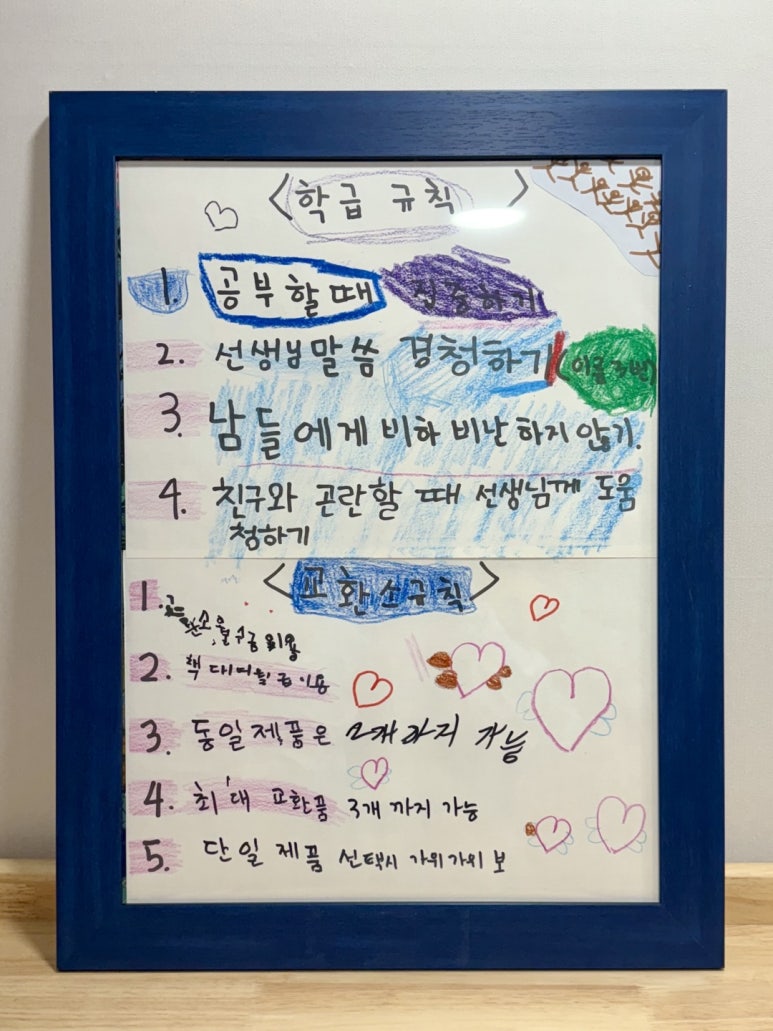 <학급 규칙>
1. 공부할때 집중하기
2. 선생님말씀 경청하기 (이름 3번)
3. 남들에게 비하 비난하지 않기.
4. 친구와 곤란할 때 선생님께 도움
청하기
<교환소규칙>
1.
2. 책
3. 동일 제품은 2개까지 가능
4. 최대 교환품 3개 까지 가능
5. 단일 제품 선택시 가위가위 보